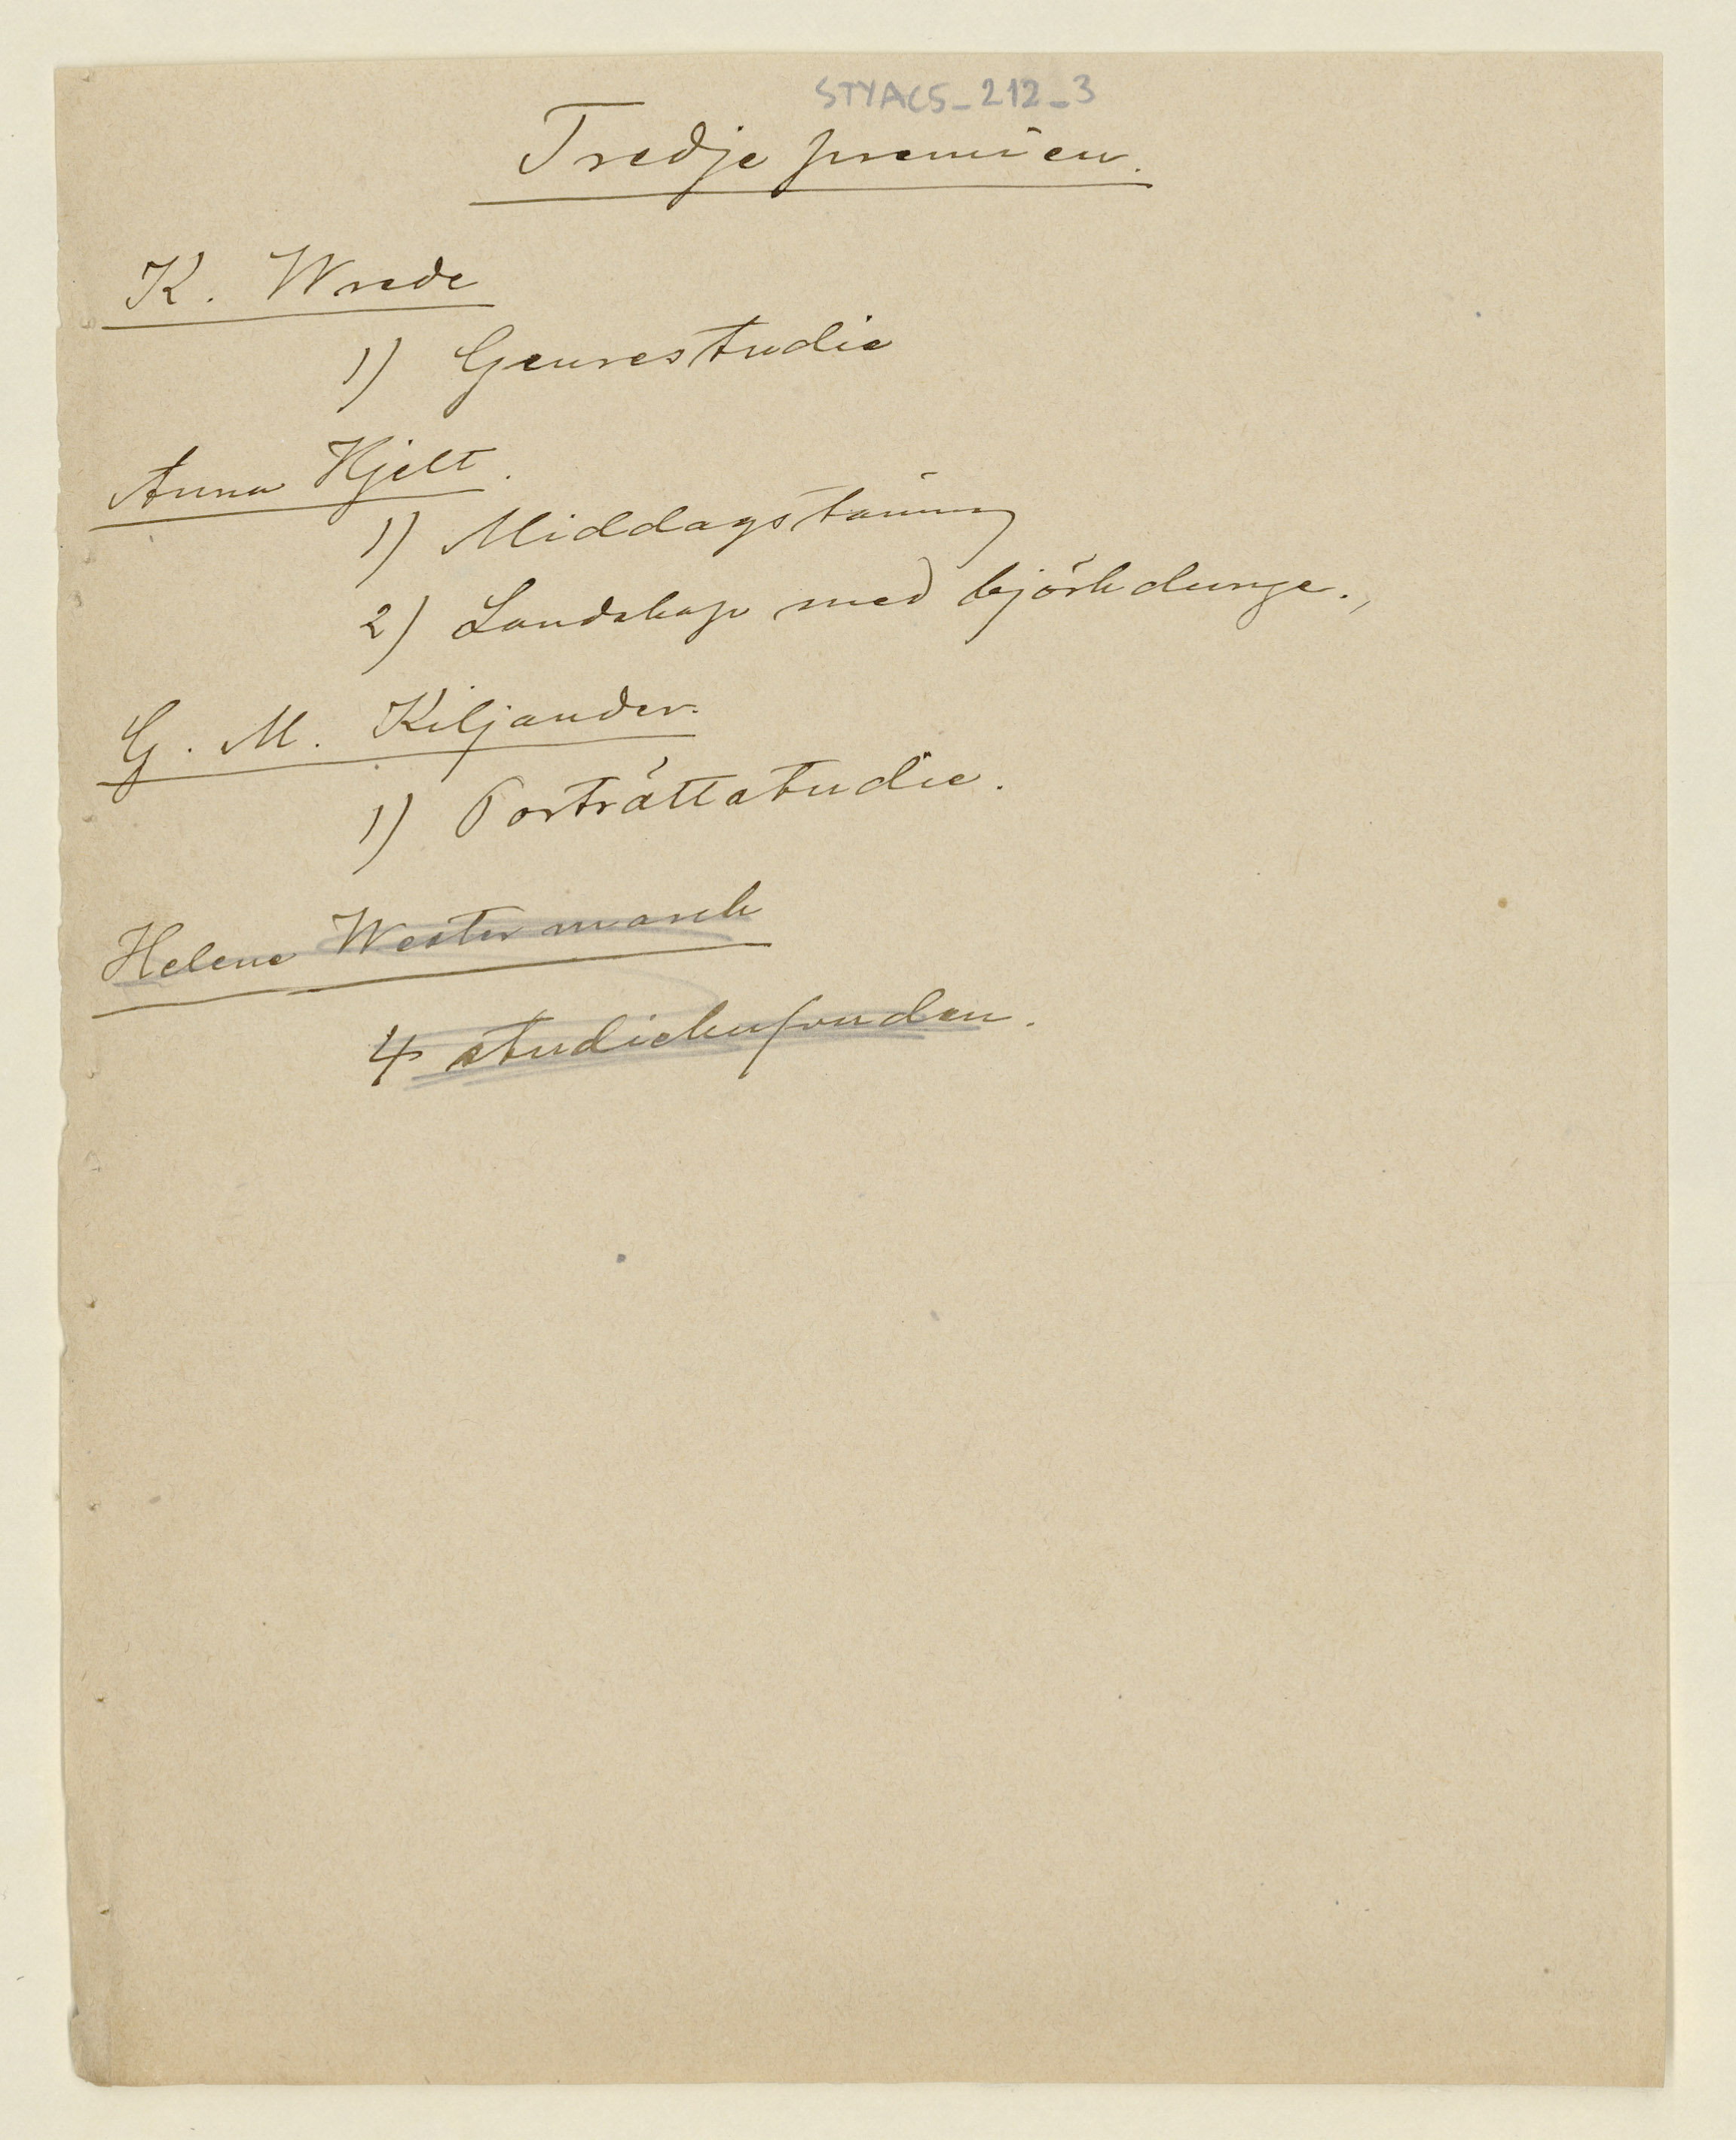 STYACS_212_3
Tredje premien.
K. Wrede
1) Genrestudie
Anna Hjelt.
1) Middagstäning
2) Landskap med björkdunge.,
G. M. Kiljander.
1) Porträttstudie.
Helene Westermarck
4 studiehufvuden.